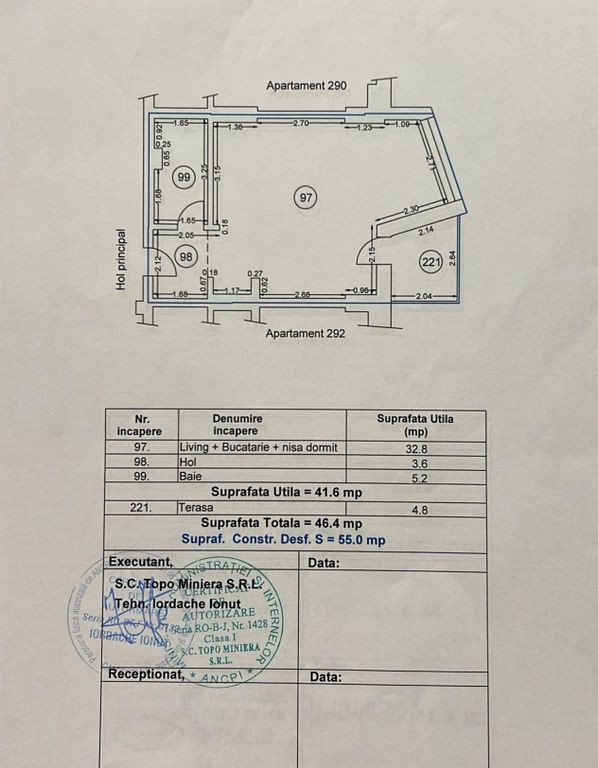 Apartament 290
1.65
1.36
2.70
1.23
1.09
0.92
0.25
0.65
99
3.25
3.15
97
1.68
1.65
0.18
2.30
2.14
2.05
Hol principal
98
2.12
2.15
221
2.64
0.18
0.27
0.67
0.62
1.68
1.17
2.66
0.96
2.04
Apartament 292
Nr. incapere Denumire incapere Suprafata Utila (mp)
97. Living + Bucatarie + nisa dormit 32.8
98. Hol 3.6
99. Baie 5.2
Suprafata Utila = 41.6 mp
221. Terasa 4.8
Suprafata Totala = 46.4 mp
Supraf. Constr. Desf. S = 55.0 mp
Executant, Data:
S.C. Topo Miniera S.R.L.
Tehn. Iordache Ionut
CERTIFICAT
DE
AUTORIZARE
Seria RO-B-J, Nr. 1428
Clasa I
S.C. TOPO MINIERA
S.R.L.
ANCPI
IORDACHE IONUT
Receptionat, Data: